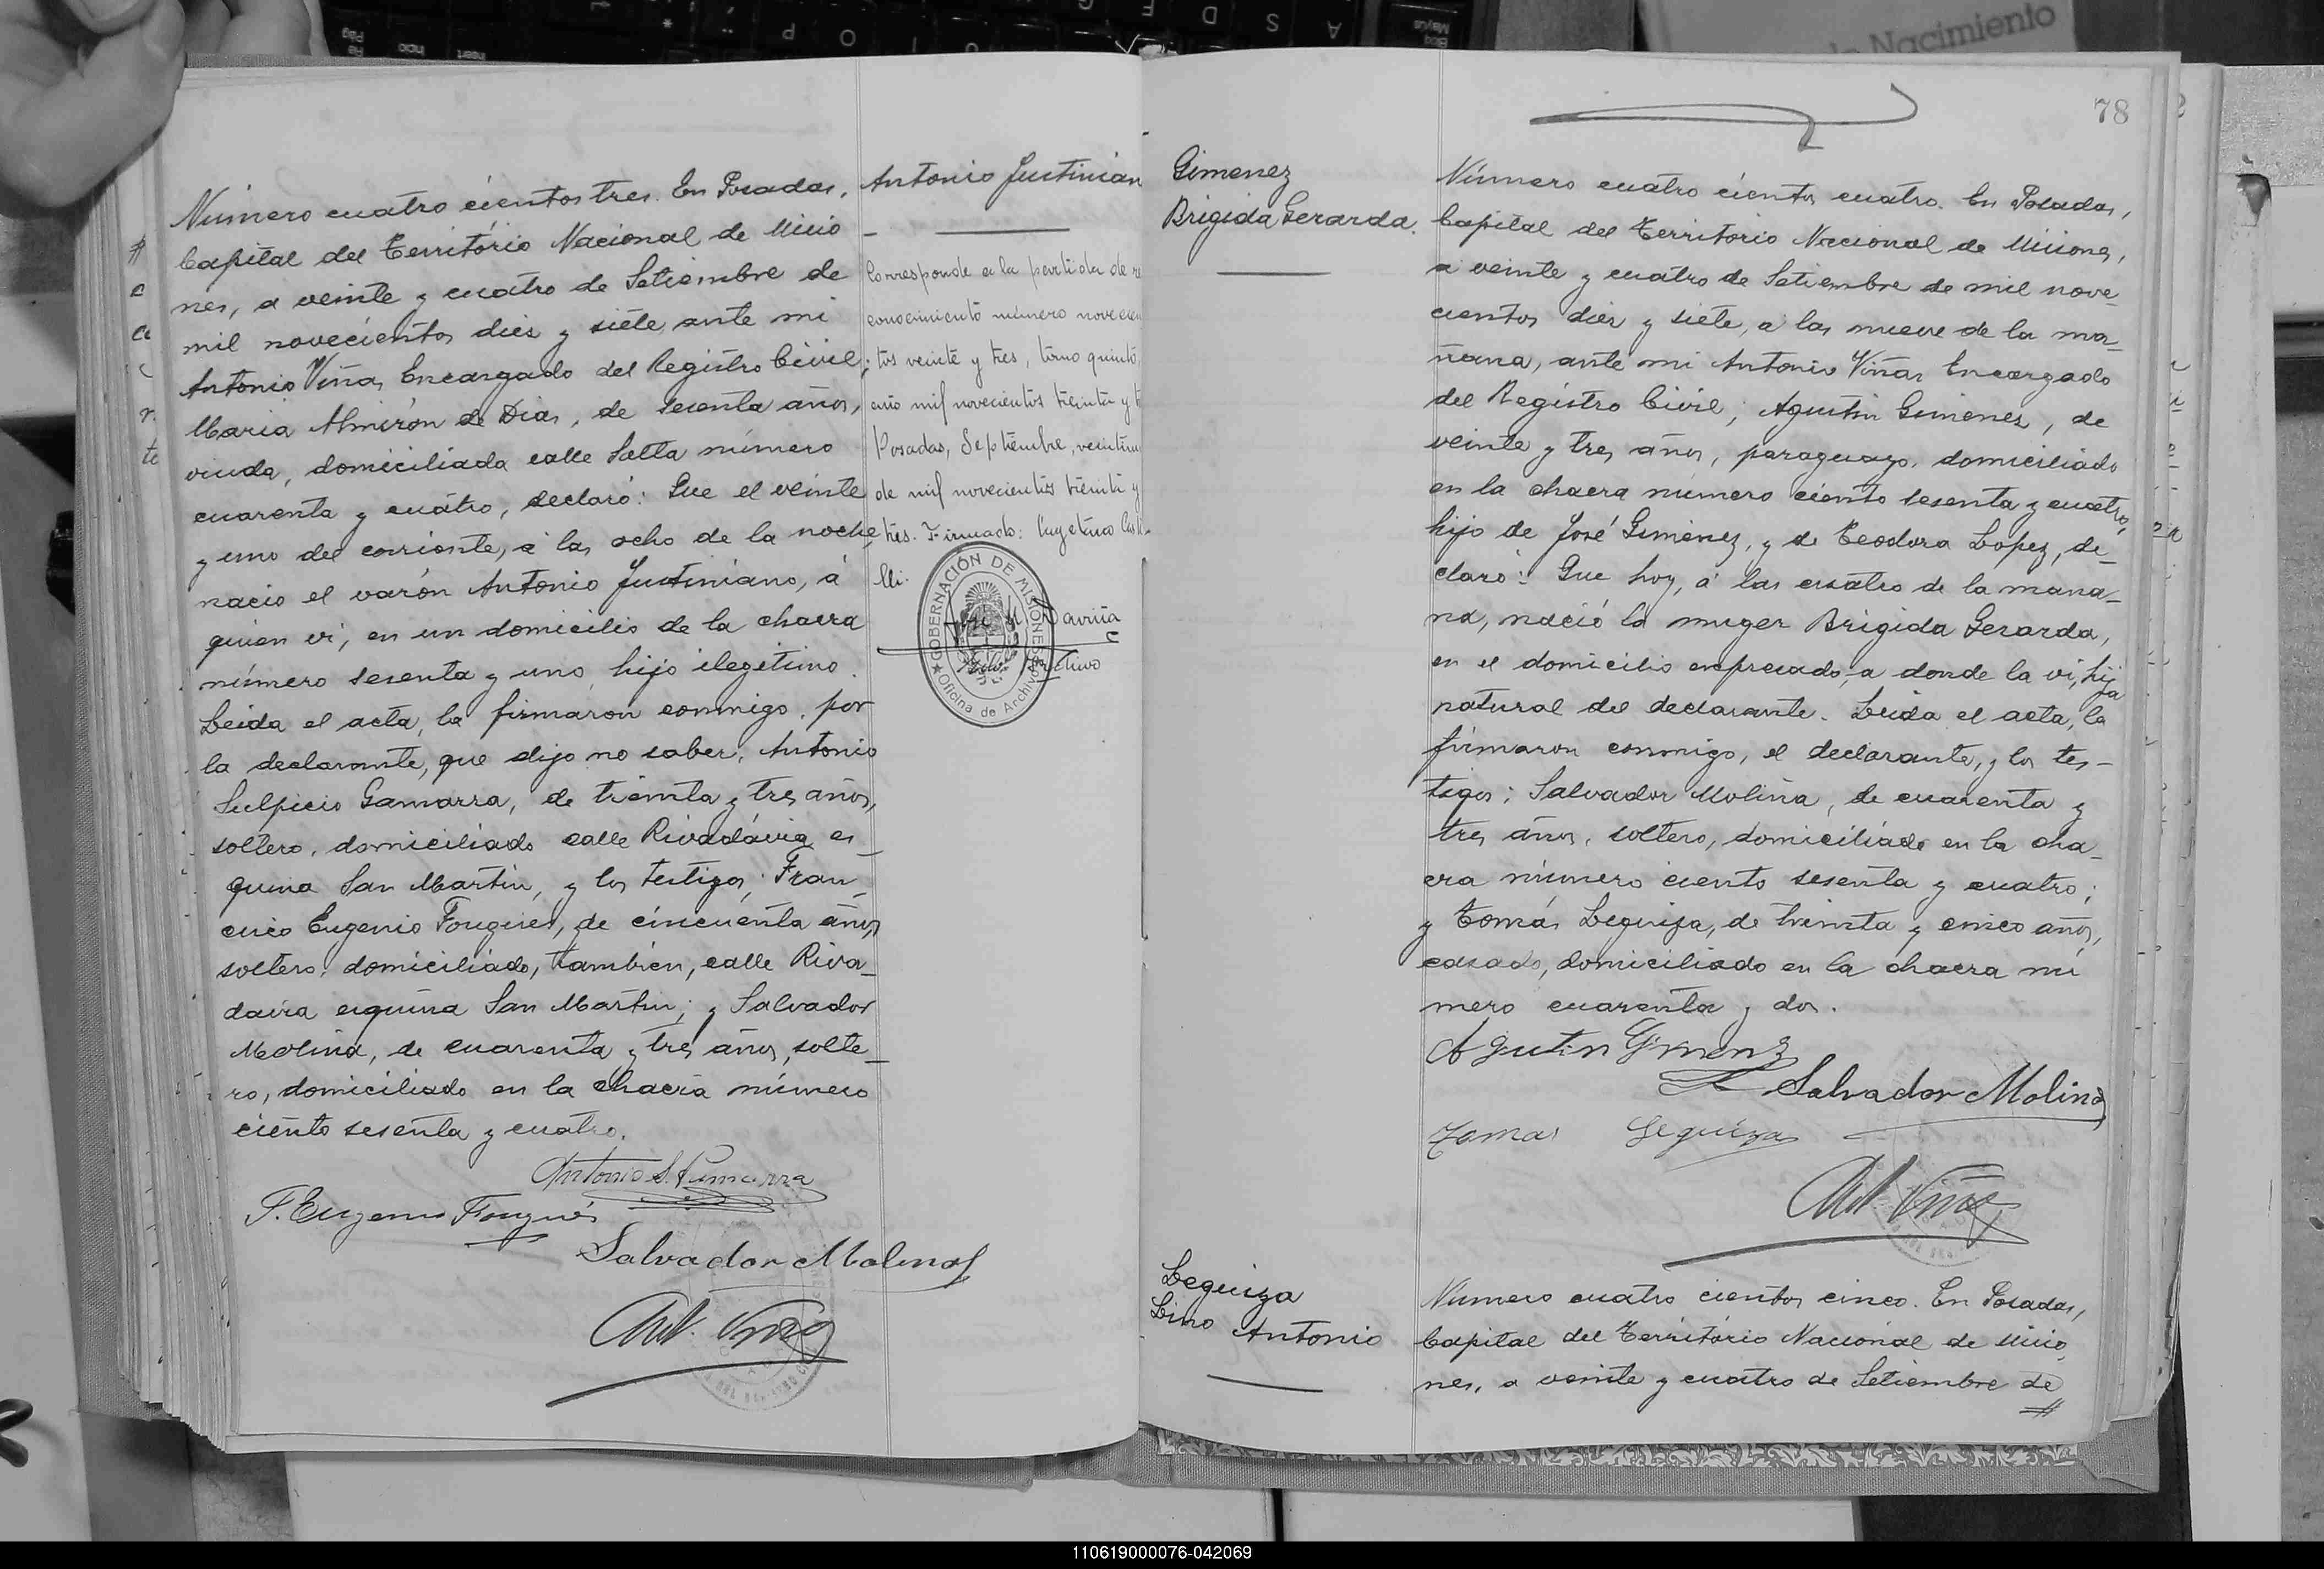 Número cuatro cientos tres. En Posadas,
Capital del Territorio Nacional de Misio
nes, a veinte y cuatro de Setiembre de
mil novecientos diez y siete, ante mi
Antonio Viñas Encargado del Registro Civil;
Maria Almirón de Dias, de sesenta años,
viuda, domiciliada calle Salta número
cuarenta y cuatro, declaró: Que el veinte
y uno del corriente, á las ocho de la noche
nació el varón Antonio Justiniano, á
quien vi, en un domicilio de la chacra
número sesenta y uno, hijo ilegetimo.
Leida el acta, la firmaron conmigo, por
la declarante, que dijo no saber, Antonio
Sulpicio Gamarra, de treinta y tres años,
soltero, domiciliado calle Rivadávia es_
quina San Martin, y los testigos: Fran_
cisco Eugenio Fouguès, de cincuenta años,
soltero, domiciliado, tambien, calle Riva_
davia esquina San Martin; y Salvador
Molina, de cuarenta y tres años, solte_
ro, domiciliado en la chacra número
ciento sesenta y cuatro.
F. Eugenio Fouguès
Salvador Molina
Ant. Viñas
Antonio Justinian
Corresponde a la partida de re
conocimiento número novecien
tos veinte y tres, tomo quinto,
año mil novecientos treinta y t
Posadas, Septiembre, veintiun
de mil novecientos treinta y
tres. Firmado:
GOBERNACIÓN DE MISIONES
Oficina de Archivo
Archivo
78
Gimenez
Brigida Gerarda.
Número cuatro cientos cuatro. En Posadas,
Capital del Territorio Nacional de Misiones,
a veinte y cuatro de Setiembre de mil nove_
cientos diez y siete, a las nueve de la ma_
ñana, ante mi Antonio Viñas Encargado
del Registro Civil; Agustin Gimenez, de
veinte y tres años, paraguayo, domiciliado
en la chacra número ciento sesenta y cuatro,
hijo de José Gimenez, y de Teodora Lopez, de_
claró: Que hoy, á las cuatro de la maña_
na, nació la muger Brigida Gerarda,
en el domicilio expresado, a donde la vi, hija
natural del declarante. Leida el acta, la
firmaron conmigo, el declarante, y los tes_
tigos: Salvador Molina, de cuarenta y
tres años, soltero, domiciliado en la cha_
cra número ciento sesenta y cuatro;
y Tomás Leguiza, de treinta y cinco años,
casado, domiciliado en la chacra nú
mero cuarenta y dos.
Agutin Gimenz
Salvador Molina
Tomas Leguiza
Ant. Viñas
Leguiza
Lino Antonio
Número cuatro cientos cinco. En Posadas,
Capital del Territorio Nacional de Misio_
nes, a veinte y cuatro de Setiembre de
110619000076-042069